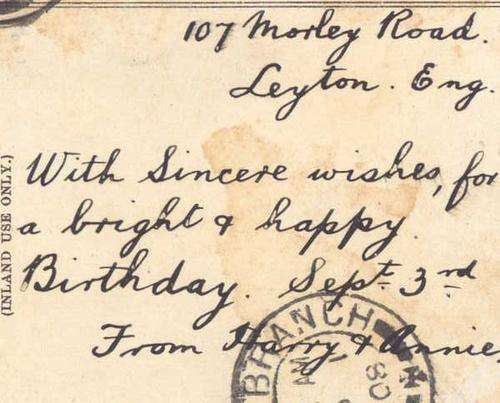 107 Morley Road.
Leyton. Eng.
With Sincere wishes, for
a bright & happy
Birthday. Sept 3rd
From Harry & Annie
(INLAND USE ONLY.)
BRANCH
AM
80